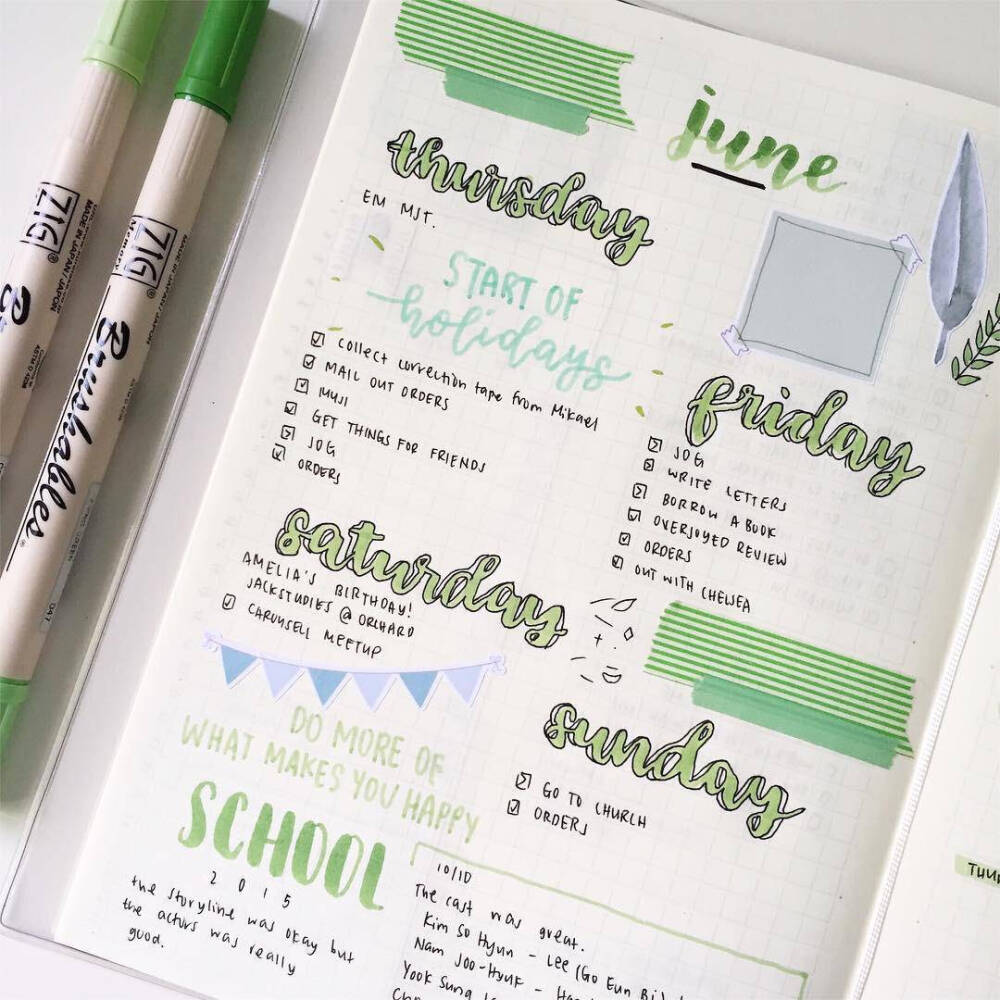 june
thursday
EM MJT.
START OF
holidays
collect correction tape from Mikael
MAIL OUT ORDERS
MUJI
GET THINGS FOR FRIENDS
JOG
ORDERS
friday
JOG
WRITE LETTERS
BORROW A BOOK
OVERJOYED REVIEW
ORDERS
OUT WITH CHELSEA
saturday
AMELIA'S BIRTHDAY!
JACKSTUDIES @ ORCHARD
CAROUSELL MEETUP
sunday
GO TO CHURCH
ORDERS
DO MORE OF
WHAT MAKES YOU HAPPY
SCHOOL
2015
the storyline was okay but
the actors was really
good.
10/10
The cast was great.
Kim So Hyun - Lee (Go Eun Bi)
Nam Joo-Hyuk -
Yook Sung
ZIG
MADE IN JAPAN/JAPON
ZIG
Memory
MADE IN JAPAN/JAPON
Brushables